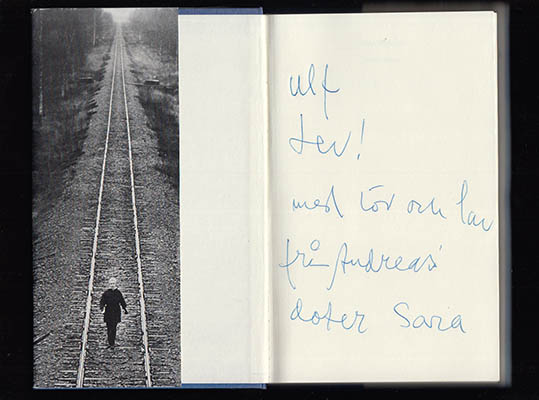 ulf
Lev!
med löv och lav
från Andreas'
doter Sara